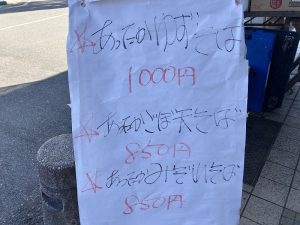 ☆あったかゆずそば
1000円
☆あったかごぼ天そば
850円
☆あったかみぞれそば
850円